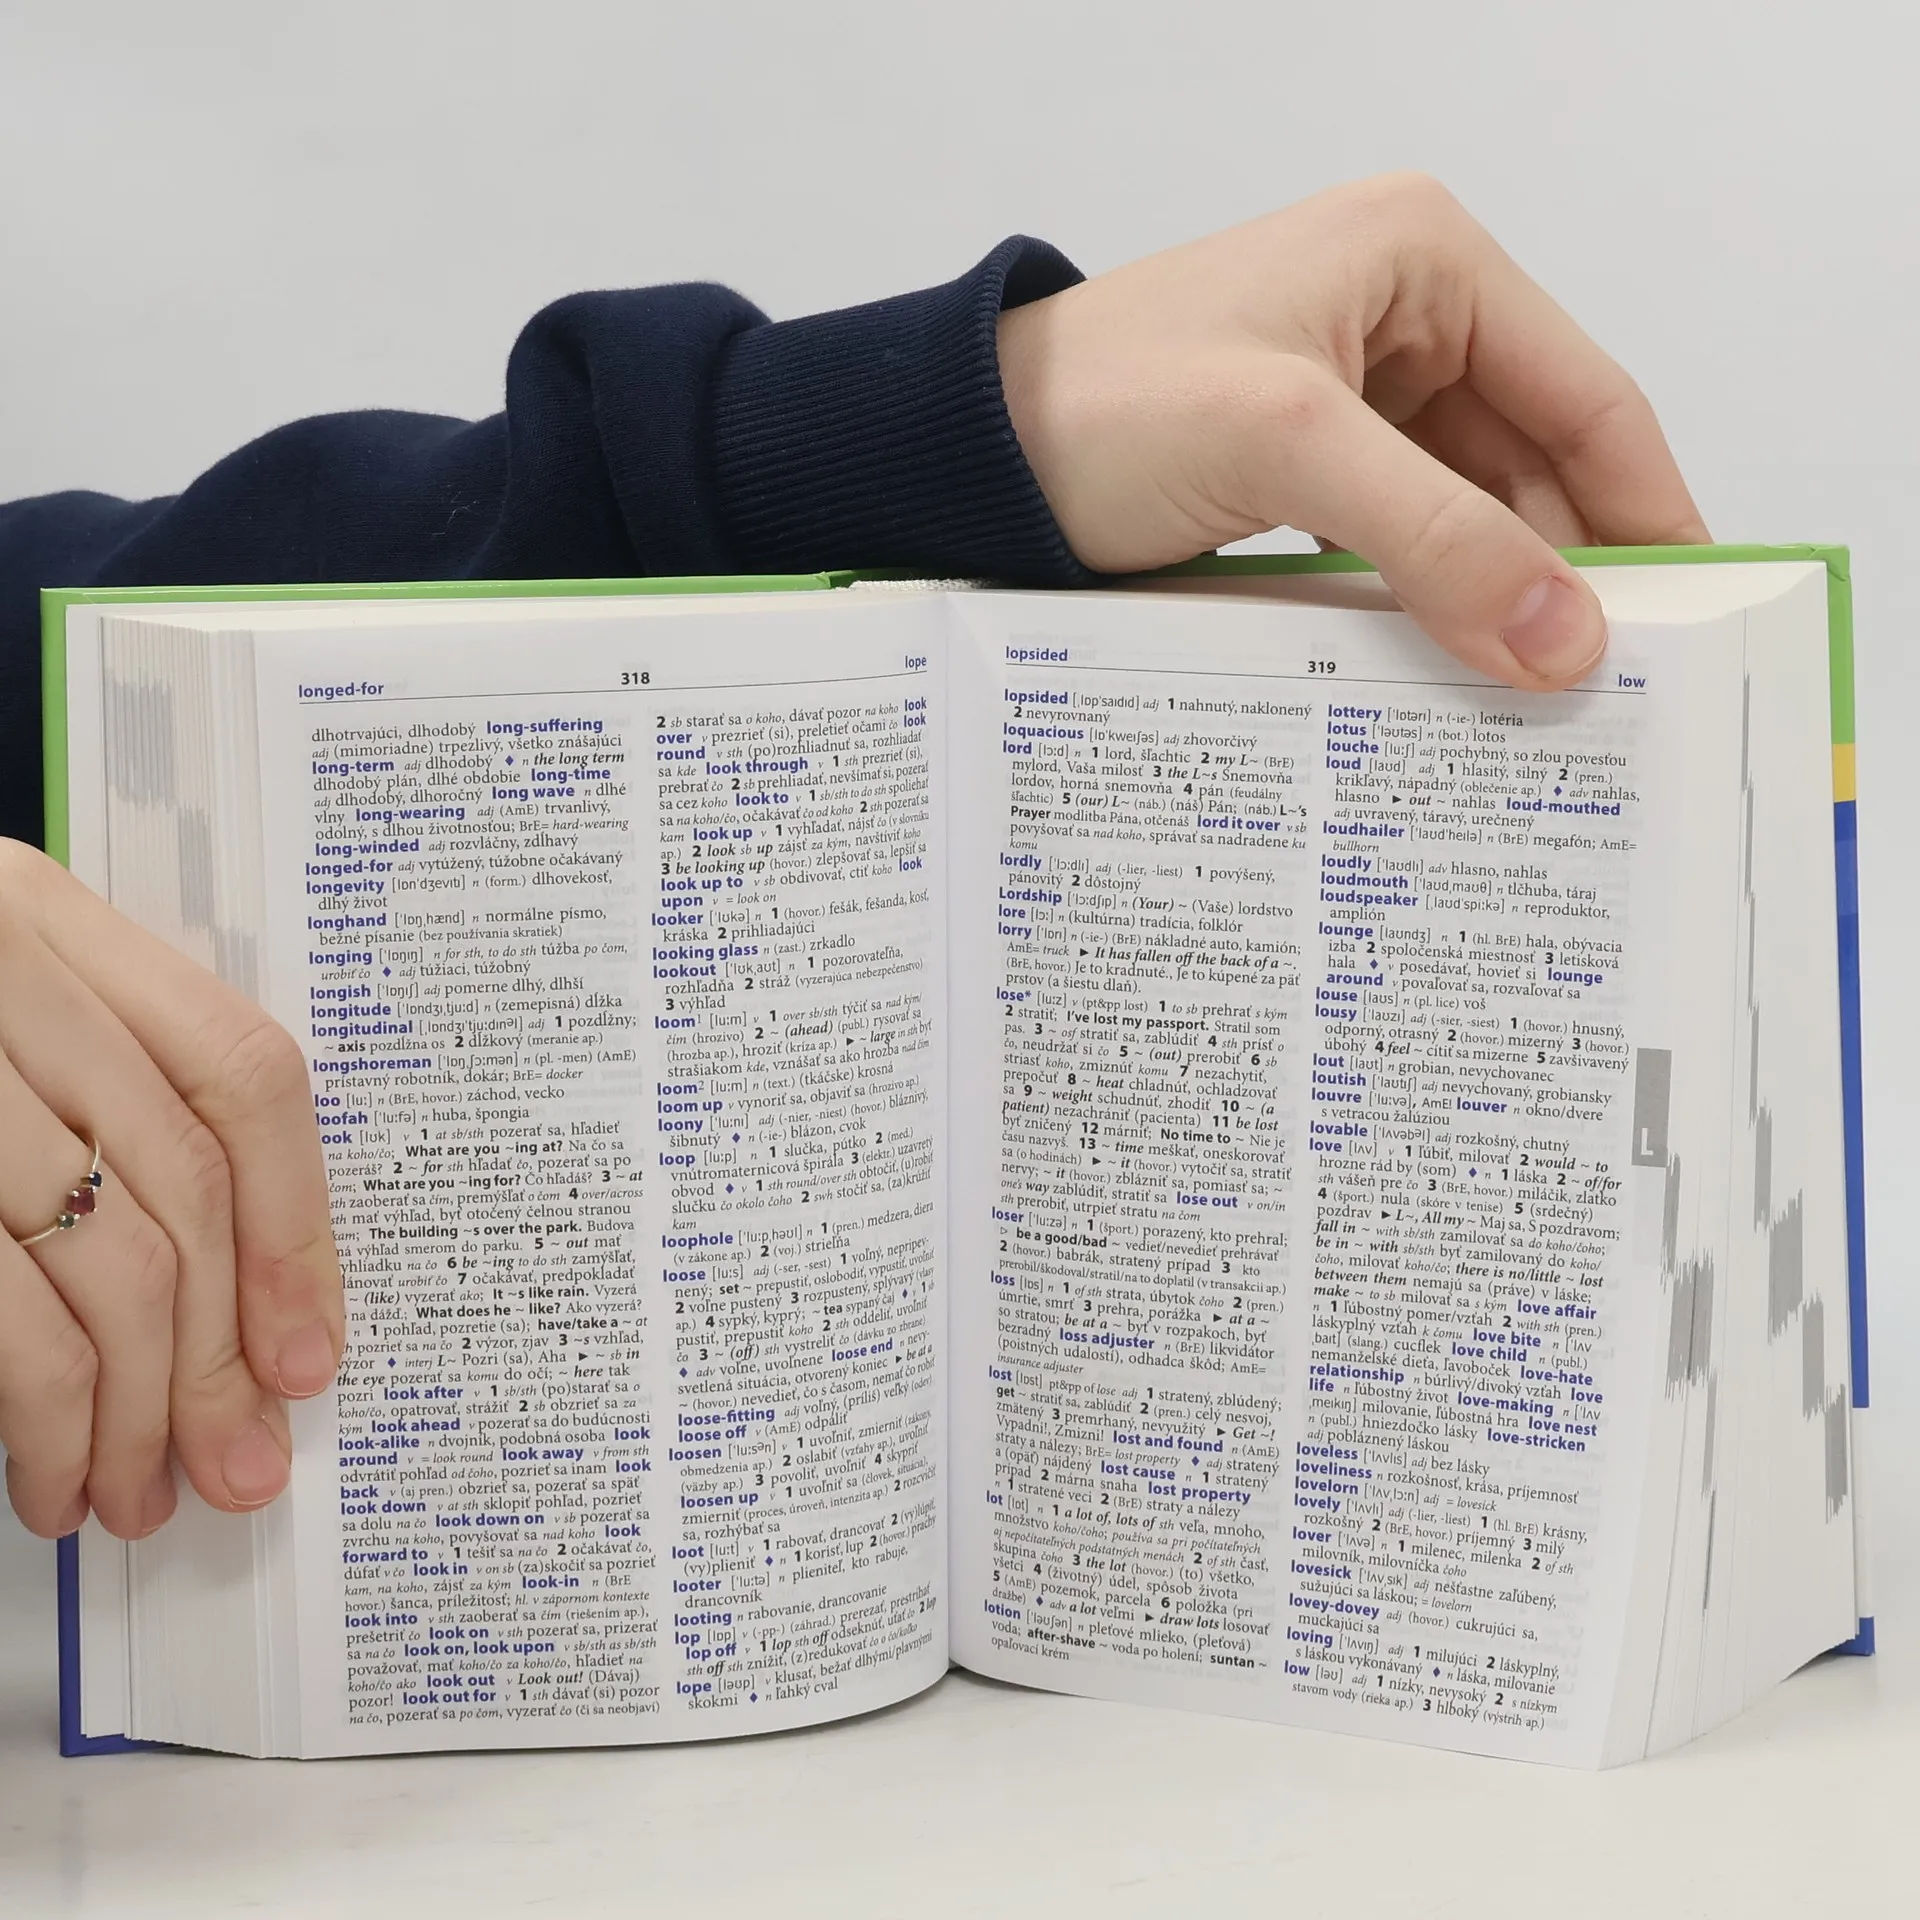 longed-for
318
lope
dlhotrvajúci, dlhodobý long-suffering
adj (mimoriadne) trpezlivý, všetko znášajúci
long-term adj dlhodobý ♦ n the long term
dlhodobý plán, dlhé obdobie long-time
adj dlhodobý, dlhoročný long wave n dlhé
vlny long-wearing adj (AmE) trvanlivý,
odolný, s dlhou životnosťou; BrE= hard-wearing
long-winded adj rozvláčny, zdĺhavý
longed-for adj vytúžený, túžobne očakávaný
longevity [lɒnˈdʒevɪti] n (form.) dlhovekosť,
dlhý život
longhand [ˈlɒŋˌhænd] n normálne písmo,
bežné písanie (bez používania skratiek)
longing [ˈlɒŋɪŋ] n for sth, to do sth túžba po čom,
urobiť čo ♦ adj túžiaci, túžobný
longish [ˈlɒŋɪʃ] adj pomerne dlhý, dlhší
longitude [ˈlɒndʒɪˌtjuːd] n (zemepisná) dĺžka
longitudinal [ˌlɒndʒɪˈtjuːdɪnəl] adj 1 pozdĺžny;
~ axis pozdĺžna os 2 dĺžkový (meranie ap.)
longshoreman [ˈlɒŋˌʃɔːmən] n (pl. -men) (AmE)
prístavný robotník, dokár; BrE= docker
loo [luː] n (BrE, hovor.) záchod, vecko
loofah [ˈluːfə] n huba, špongia
look [lʊk] v 1 at sb/sth pozerať sa, hľadieť
na koho/čo; What are you ~ing at? Na čo sa
pozeráš? 2 ~ for sth hľadať čo, pozerať sa po
čom; What are you ~ing for? Čo hľadáš? 3 ~ at
sth zaoberať sa čím, premýšľať o čom 4 over/across
sth mať výhľad, byť otočený čelnou stranou
kam; The building ~s over the park. Budova
má výhľad smerom do parku. 5 ~ out mať
vyhliadku na čo 6 be ~ing to do sth zamýšľať,
plánovať urobiť čo 7 očakávať, predpokladať
~ (like) vyzerať ako; It ~s like rain. Vyzerá
na dážď.; What does he ~ like? Ako vyzerá?
n 1 pohľad, pozretie (sa); have/take a ~ at
sth pozrieť sa na čo 2 výzor, zjav 3 ~s vzhľad,
výzor ♦ interj L~ Pozri (sa), Aha ► ~ sb in
the eye pozerať sa komu do očí; ~ here tak
pozri look after v 1 sb/sth (po)starať sa o
koho/čo, opatrovať, strážiť 2 sb obzrieť sa za
kým look ahead v pozerať sa do budúcnosti
look-alike n dvojník, podobná osoba look
around v = look round look away v from sth
odvrátiť pohľad od čoho, pozrieť sa inam look
back v (aj pren.) obzrieť sa, pozerať sa späť
look down v at sth sklopiť pohľad, pozrieť
sa dolu na čo look down on v sb pozerať sa
zvrchu na koho, povyšovať sa nad koho look
forward to v 1 tešiť sa na čo 2 očakávať čo,
dúfať v čo look in v on sb (za)skočiť sa pozrieť
kam, na koho, zájsť za kým look-in n (BrE
hovor.) šanca, príležitosť; hl. v zápornom kontexte
look into v sth zaoberať sa čím (riešením ap.),
prešetriť čo look on v sth pozerať sa, prizerať
sa na čo look on, look upon v sb/sth as sb/sth
považovať, mať koho/čo za koho/čo, hľadieť na
koho/čo ako look out v Look out! (Dávaj)
pozor! look out for v 1 sth dávať (si) pozor
na čo, pozerať sa po čom, vyzerať čo (či sa neobjaví)
2 sb starať sa o koho, dávať pozor na koho look
over v prezrieť (si), preletieť očami čo look
round v sth (po)rozhliadnuť sa, rozhliadať
sa kde look through v 1 sth prezrieť (si),
prebrať čo 2 sb prehliadať, nevšímať si, pozerať
sa cez koho look to v 1 sb/sth to do sth spoliehať
sa na koho/čo, očakávať čo od koho 2 sth pozerať sa
kam look up v 1 vyhľadať, nájsť čo (v slovníku
ap.) 2 look sb up zájsť za kým, navštíviť koho
3 be looking up (hovor.) zlepšovať sa, lepšiť sa
look up to v sb obdivovať, ctiť koho look
upon v = look on
looker [ˈlʊkə] n 1 (hovor.) fešák, fešanda, kosť,
kráska 2 prihliadajúci
looking glass n (zast.) zrkadlo
lookout [ˈlʊkˌaʊt] n 1 pozorovateľňa,
rozhľadňa 2 stráž (vyzerajúca nebezpečenstvo)
3 výhľad
loom¹ [luːm] v 1 over sb/sth týčiť sa nad kým/
čím (hrozivo) 2 ~ (ahead) (publ.) rysovať sa
(hrozba ap.), hroziť (kríza ap.) ► ~ large in sth byť
strašiakom kde, vznášať sa ako hrozba nad čím
loom² [luːm] n (text.) (tkáčske) krosná
loom up v vynoriť sa, objaviť sa (hrozivo ap.)
loony [ˈluːni] adj (-nier, -niest) (hovor.) bláznivý,
šibnutý ♦ n (-ie-) blázon, cvok
loop [luːp] n 1 slučka, pútko 2 (med.)
vnútromaternicová špirála 3 (elektr.) uzavretý
obvod ♦ v 1 sth round/over sth obtočiť, (u)robiť
slučku čo okolo čoho 2 swh stočiť sa, (za)krúžiť
kam
loophole [ˈluːpˌhəʊl] n 1 (pren.) medzera, diera
(v zákone ap.) 2 (voj.) strieľňa
loose [luːs] adj (-ser, -sest) 1 voľný, nepripev-
nený; set ~ prepustiť, oslobodiť, vypustiť, uvoľniť
2 voľne pustený 3 rozpustený, splývavý (vlasy
ap.) 4 sypký, kyprý; ~ tea sypaný čaj ♦ v 1 sb
pustiť, prepustiť koho 2 sth oddeliť, uvoľniť
čo 3 ~ (off) sth vystreliť čo (dávku zo zbrane)
♦ adv voľne, uvoľnene loose end n nevy-
svetlená situácia, otvorený koniec ► be at a
~ (hovor.) nevedieť, čo s časom, nemať čo robiť
loose-fitting adj voľný, (príliš) veľký (odev)
loose off v (AmE) odpáliť
loosen [ˈluːsən] v 1 uvoľniť, zmierniť (zákony,
obmedzenia ap.) 2 oslabiť (vzťahy ap.), uvoľniť
(väzby ap.) 3 povoliť, uvoľniť 4 skypriť
loosen up v 1 uvoľniť sa (človek, situácia),
zmierniť (proces, úroveň, intenzita ap.) 2 rozcvičiť
sa, rozhýbať sa
loot [luːt] v 1 rabovať, drancovať 2 (vy)lúpiť,
(vy)plieniť ♦ n 1 korisť, lup 2 (hovor.) prachy
looter [ˈluːtə] n plieniteľ, kto rabuje,
drancovník
looting n rabovanie, drancovanie
lop [lɒp] v (-pp-) (záhrad.) prerezať, prestrihať
lop off v 1 lop sth off odseknúť, uťať čo 2 lop
sth off sth znížiť, (z)redukovať čo o čo/koľko
lope [ləʊp] v klusať, bežať dlhými/plavnými
skokmi ♦ n ľahký cval
lopsided
319
low
lopsided [ˌlɒpˈsaɪdɪd] adj 1 nahnutý, naklonený
2 nevyrovnaný
loquacious [lɒˈkweɪʃəs] adj zhovorčivý
lord [lɔːd] n 1 lord, šľachtic 2 my L~ (BrE)
mylord, Vaša milosť 3 the L~s Snemovňa
lordov, horná snemovňa 4 pán (feudálny
šľachtic) 5 (our) L~ (náb.) (náš) Pán; (náb.) L~'s
Prayer modlitba Pána, otčenáš lord it over v sb
povyšovať sa nad koho, správať sa nadradene ku
komu
lordly [ˈlɔːdli] adj (-lier, -liest) 1 povýšený,
pánovitý 2 dôstojný
Lordship [ˈlɔːdʃɪp] n (Your) ~ (Vaše) lordstvo
lore [lɔː] n (kultúrna) tradícia, folklór
lorry [ˈlɒrɪ] n (-ie-) (BrE) nákladné auto, kamión;
AmE= truck ► It has fallen off the back of a ~.
(BrE, hovor.) Je to kradnuté., Je to kúpené za päť
prstov (a šiestu dlaň).
lose* [luːz] v (pt&pp lost) 1 to sb prehrať s kým
2 stratiť; I've lost my passport. Stratil som
pas. 3 ~ osf stratiť sa, zablúdiť 4 sth prísť o
čo, neudržať si čo 5 ~ (out) prerobiť 6 sb
striasť koho, zmiznúť komu 7 nezachytiť,
prepočuť 8 ~ heat chladnúť, ochladzovať
sa 9 ~ weight schudnúť, zhodiť 10 ~ (a
patient) nezachrániť (pacienta) 11 be lost
byť zničený 12 márniť; No time to ~ Nie je
času nazvyš. 13 ~ time meškať, oneskorovať
sa (o hodinách) ► ~ it (hovor.) vytočiť sa, stratiť
nervy; ~ it (hovor.) zblázniť sa, pomiasť sa; ~
one's way zablúdiť, stratiť sa lose out v on/in
sth prerobiť, utrpieť stratu na čom
loser [ˈluːzə] n 1 (šport.) porazený, kto prehral;
▷ be a good/bad ~ vedieť/nevedieť prehrávať
2 (hovor.) babrák, stratený prípad 3 kto
prerobil/škodoval/stratil/na to doplatil (v transakcii ap.)
loss [lɒs] n 1 of sth strata, úbytok čoho 2 (pren.)
úmrtie, smrť 3 prehra, porážka ► at a ~
so stratou; be at a ~ byť v rozpakoch, byť
bezradný loss adjuster n (BrE) likvidátor
(poistných udalostí), odhadca škôd; AmE=
insurance adjuster
lost [lɒst] pt&pp of lose adj 1 stratený, zblúdený;
get ~ stratiť sa, zablúdiť 2 (pren.) celý nesvoj,
zmätený 3 premrhaný, nevyužitý ► Get ~!
Vypadni!, Zmizni! lost and found n (AmE)
straty a nálezy; BrE= lost property ♦ adj stratený
a (opäť) nájdený lost cause n 1 stratený
prípad 2 márna snaha lost property
n 1 stratené veci 2 (BrE) straty a nálezy
lot [lɒt] n 1 a lot of, lots of sth veľa, mnoho,
množstvo koho/čoho; používa sa pri počítateľných
aj nepočítateľných podstatných menách 2 of sth časť,
skupina čoho 3 the lot (hovor.) (to) všetko,
všetci 4 (životný) údel, spôsob života
5 (AmE) pozemok, parcela 6 položka (pri
dražbe) ♦ adv a lot veľmi ► draw lots losovať
lotion [ˈləʊʃən] n pleťové mlieko, (pleťová)
voda; after-shave ~ voda po holení; suntan ~
opaľovací krém
lottery [ˈlɒtərɪ] n (-ie-) lotéria
lotus [ˈləʊtəs] n (bot.) lotos
louche [luːʃ] adj pochybný, so zlou povesťou
loud [laʊd] adj 1 hlasitý, silný 2 (pren.)
krikľavý, nápadný (oblečenie ap.) ♦ adv nahlas,
hlasno ► out ~ nahlas loud-mouthed
adj uvravený, táravý, urečnený
loudhailer [ˈlaʊdˈheɪlə] n (BrE) megafón; AmE=
bullhorn
loudly [ˈlaʊdli] adv hlasno, nahlas
loudmouth [ˈlaʊdˌmaʊθ] n tlčhuba, táraj
loudspeaker [ˌlaʊdˈspiːkə] n reproduktor,
amplión
lounge [laʊndʒ] n 1 (hl. BrE) hala, obývacia
izba 2 spoločenská miestnosť 3 letisková
hala ♦ v posedávať, hovieť si lounge
around v povaľovať sa, rozvaľovať sa
louse [laʊs] n (pl. lice) voš
lousy [ˈlaʊzɪ] adj (-sier, -siest) 1 (hovor.) hnusný,
odporný, otrasný 2 (hovor.) mizerný 3 (hovor.)
úbohý 4 feel ~ cítiť sa mizerne 5 zavšivavený
lout [laʊt] n grobian, nevychovanec
loutish [ˈlaʊtɪʃ] adj nevychovaný, grobiansky
louvre [ˈluːvə], AmE! louver n okno/dvere
s vetracou žalúziou
lovable [ˈlʌvəbəl] adj rozkošný, chutný
love [lʌv] v 1 ľúbiť, milovať 2 would ~ to
hrozne rád by (som) ♦ n 1 láska 2 ~ of/for
sth vášeň pre čo 3 (BrE, hovor.) miláčik, zlatko
4 (šport.) nula (skóre v tenise) 5 (srdečný)
pozdrav ► L~, All my ~ Maj sa, S pozdravom;
fall in ~ with sb/sth zamilovať sa do koho/čoho;
be in ~ with sb/sth byť zamilovaný do koho/
čoho, milovať koho/čo; there is no/little ~ lost
between them nemajú sa (práve) v láske;
make ~ to sb milovať sa s kým love affair
n 1 ľúbostný pomer/vzťah 2 with sth (pren.)
láskyplný vzťah k čomu love bite n [ˈlʌv
ˌbaɪt] (slang.) cucflek love child n (publ.)
nemanželské dieťa, ľavoboček love-hate
relationship n búrlivý/divoký vzťah love
life n ľúbostný život love-making n [ˈlʌv
ˌmeɪkɪŋ] milovanie, ľúbostná hra love nest
n (publ.) hniezdočko lásky love-stricken
adj pobláznený láskou
loveless [ˈlʌvlɪs] adj bez lásky
loveliness n rozkošnosť, krása, príjemnosť
lovelorn [ˈlʌvˌlɔːn] adj = lovesick
lovely [ˈlʌvlɪ] adj (-lier, -liest) 1 (hl. BrE) krásny,
rozkošný 2 (BrE, hovor.) príjemný 3 milý
lover [ˈlʌvə] n 1 milenec, milenka 2 of sth
milovník, milovníčka čoho
lovesick [ˈlʌvˌsɪk] adj nešťastne zaľúbený,
sužujúci sa láskou; = lovelorn
lovey-dovey adj (hovor.) cukrujúci sa,
muckajúci sa
loving [ˈlʌvɪŋ] adj 1 milujúci 2 láskyplný,
s láskou vykonávaný ♦ n láska, milovanie
low [ləʊ] adj 1 nízky, nevysoký 2 s nízkym
stavom vody (rieka ap.) 3 hlboký (výstrih ap.)
L